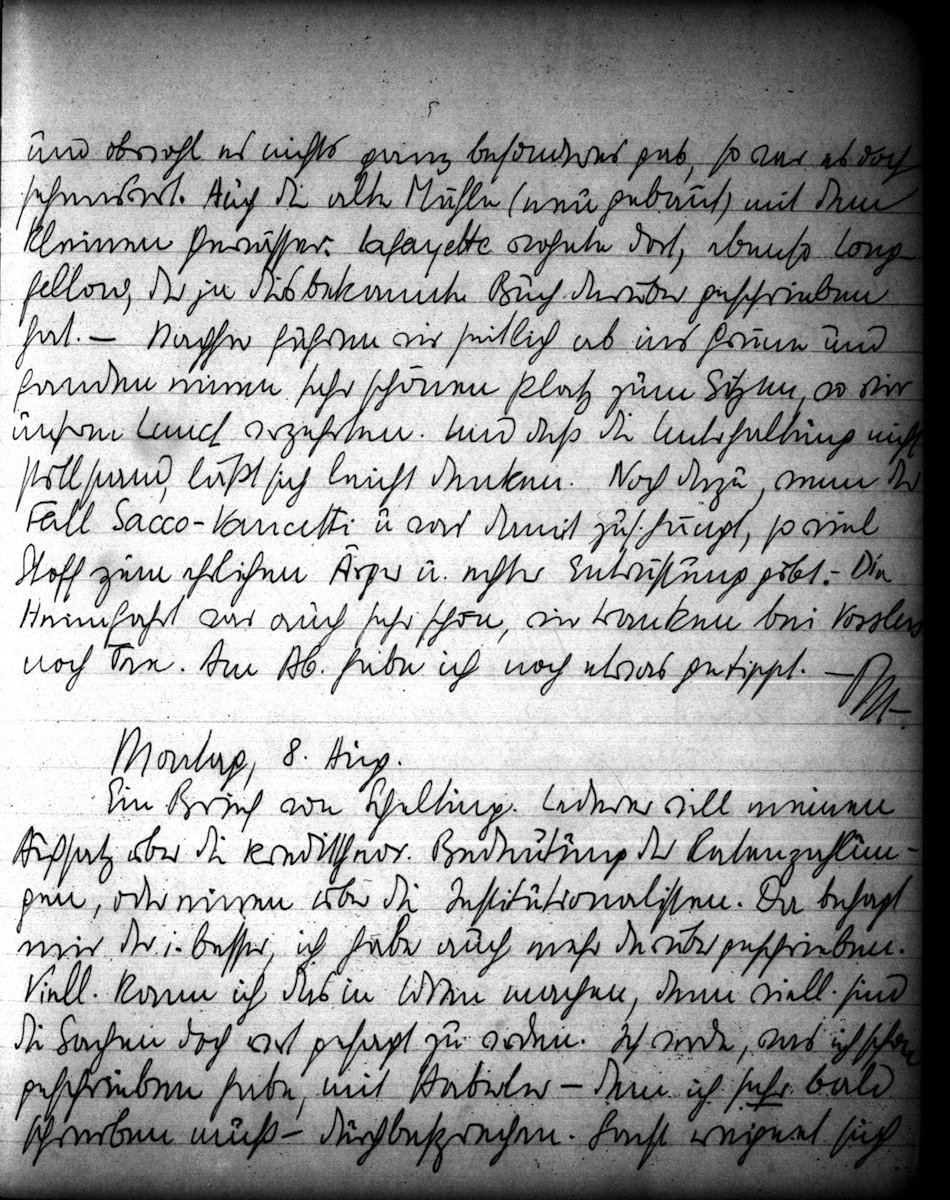 und obwohl es nichts ganz besonderes gab, so war es doch
sehenswert. Auch die alte Mühle (neu gebaut) mit dem
kleinen Gewässer. Lafayette wohnte dort, ebenso Long-
fellow, der ja das bekannte Buch darüber geschrieben
hat. — Nachher fuhren wir seitlich ab ins Grüne und
fanden einen sehr schönen Platz zum Sitzen, wo wir
unseren Lunch verzehrten. Und daß die Unterhaltung nicht
stillstand, läßt sich leicht denken. Noch dazu, wenn der
Fall Sacco-Vancetti u was damit zus.hängt, so viel
Stoff zum ehrlichen Ärger u. echter Entrüstung gibt. - Die
Heimfahrt war auch sehr schön, wir tranken bei Vosslers
noch Tee. Am Ab. habe ich noch etwas getippt. —
Montag, 8. Aug.
Ein Brief von Schelting. Lederer will meinen
Aufsatz über die kredittheor. Bedeutung der Ratenzahlun-
gen, oder einen über die Institutionalisten. Der behagt
mir der i. besser, ich habe auch mehr darüber geschrieben.
Viell. kann ich das in machen, denn viell. sind
die Sachen doch wert gesagt zu werden. Ich werde, was ich schon
geschrieben habe, mit Haberler — dem ich sehr bald
schreiben muß — durchbesprechen. Sonst ereignet sich